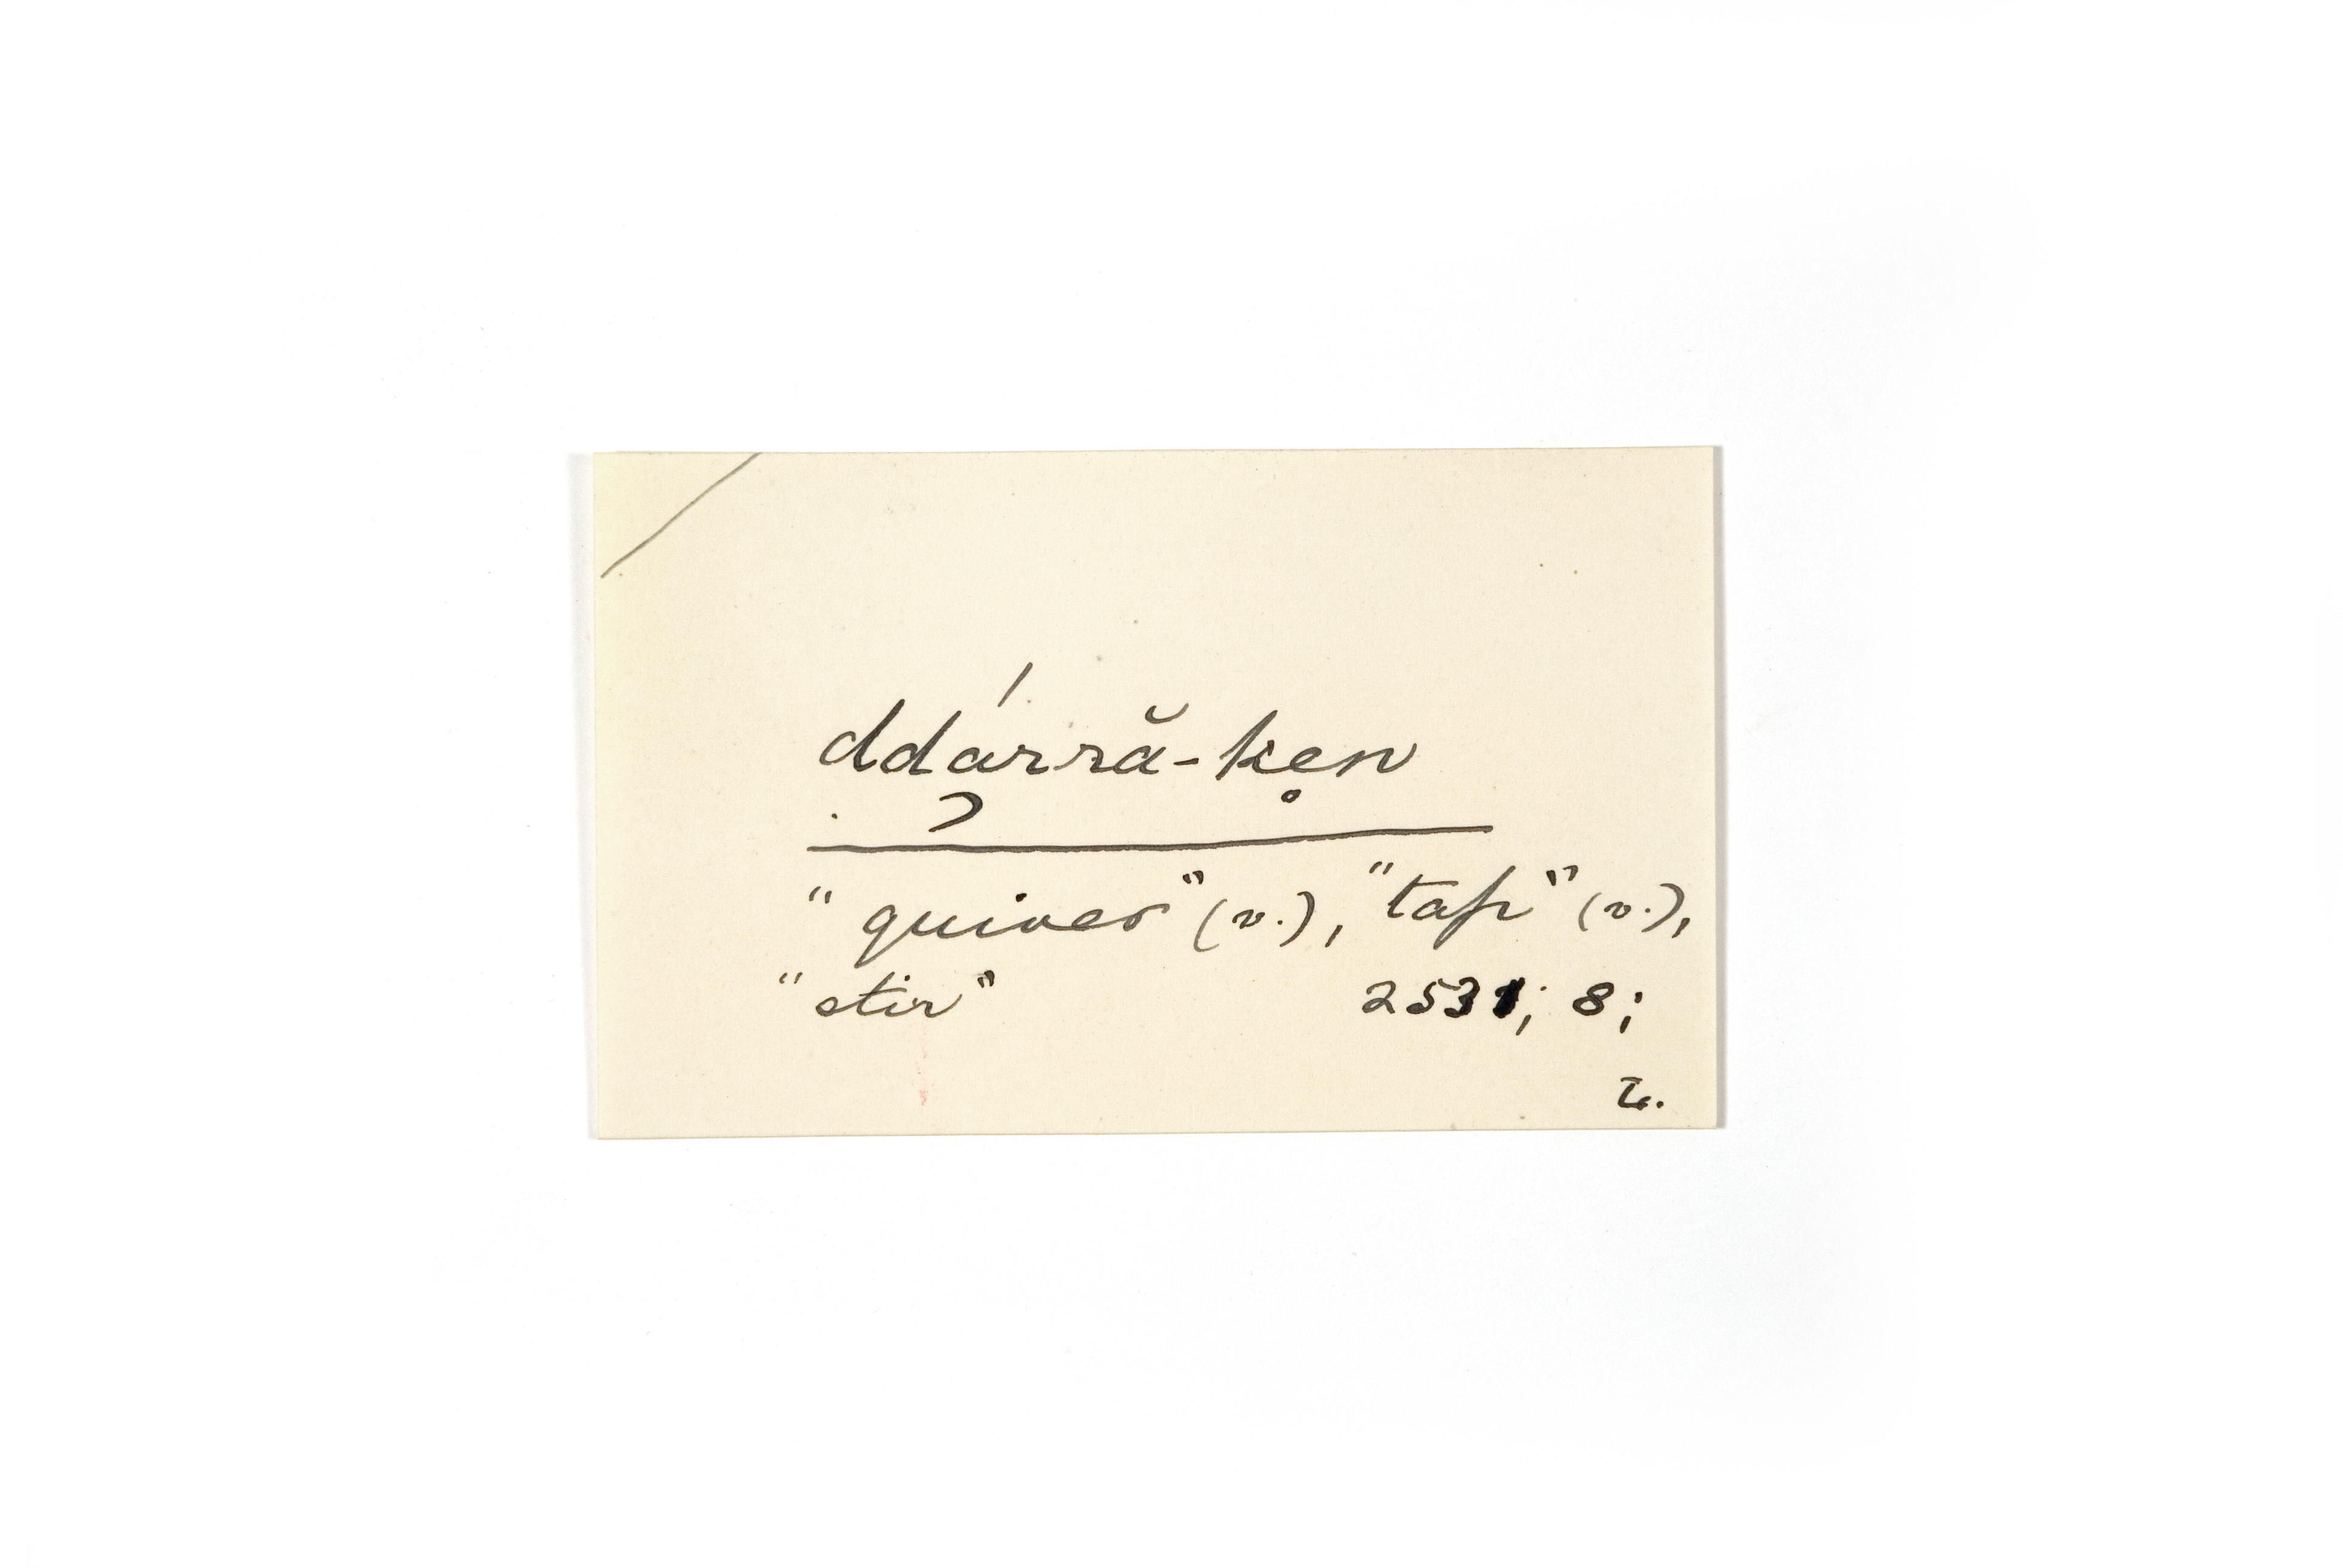 ddárră-ken
"quiver" (v.), "tap" (v.),
"stir" 2531; 8;